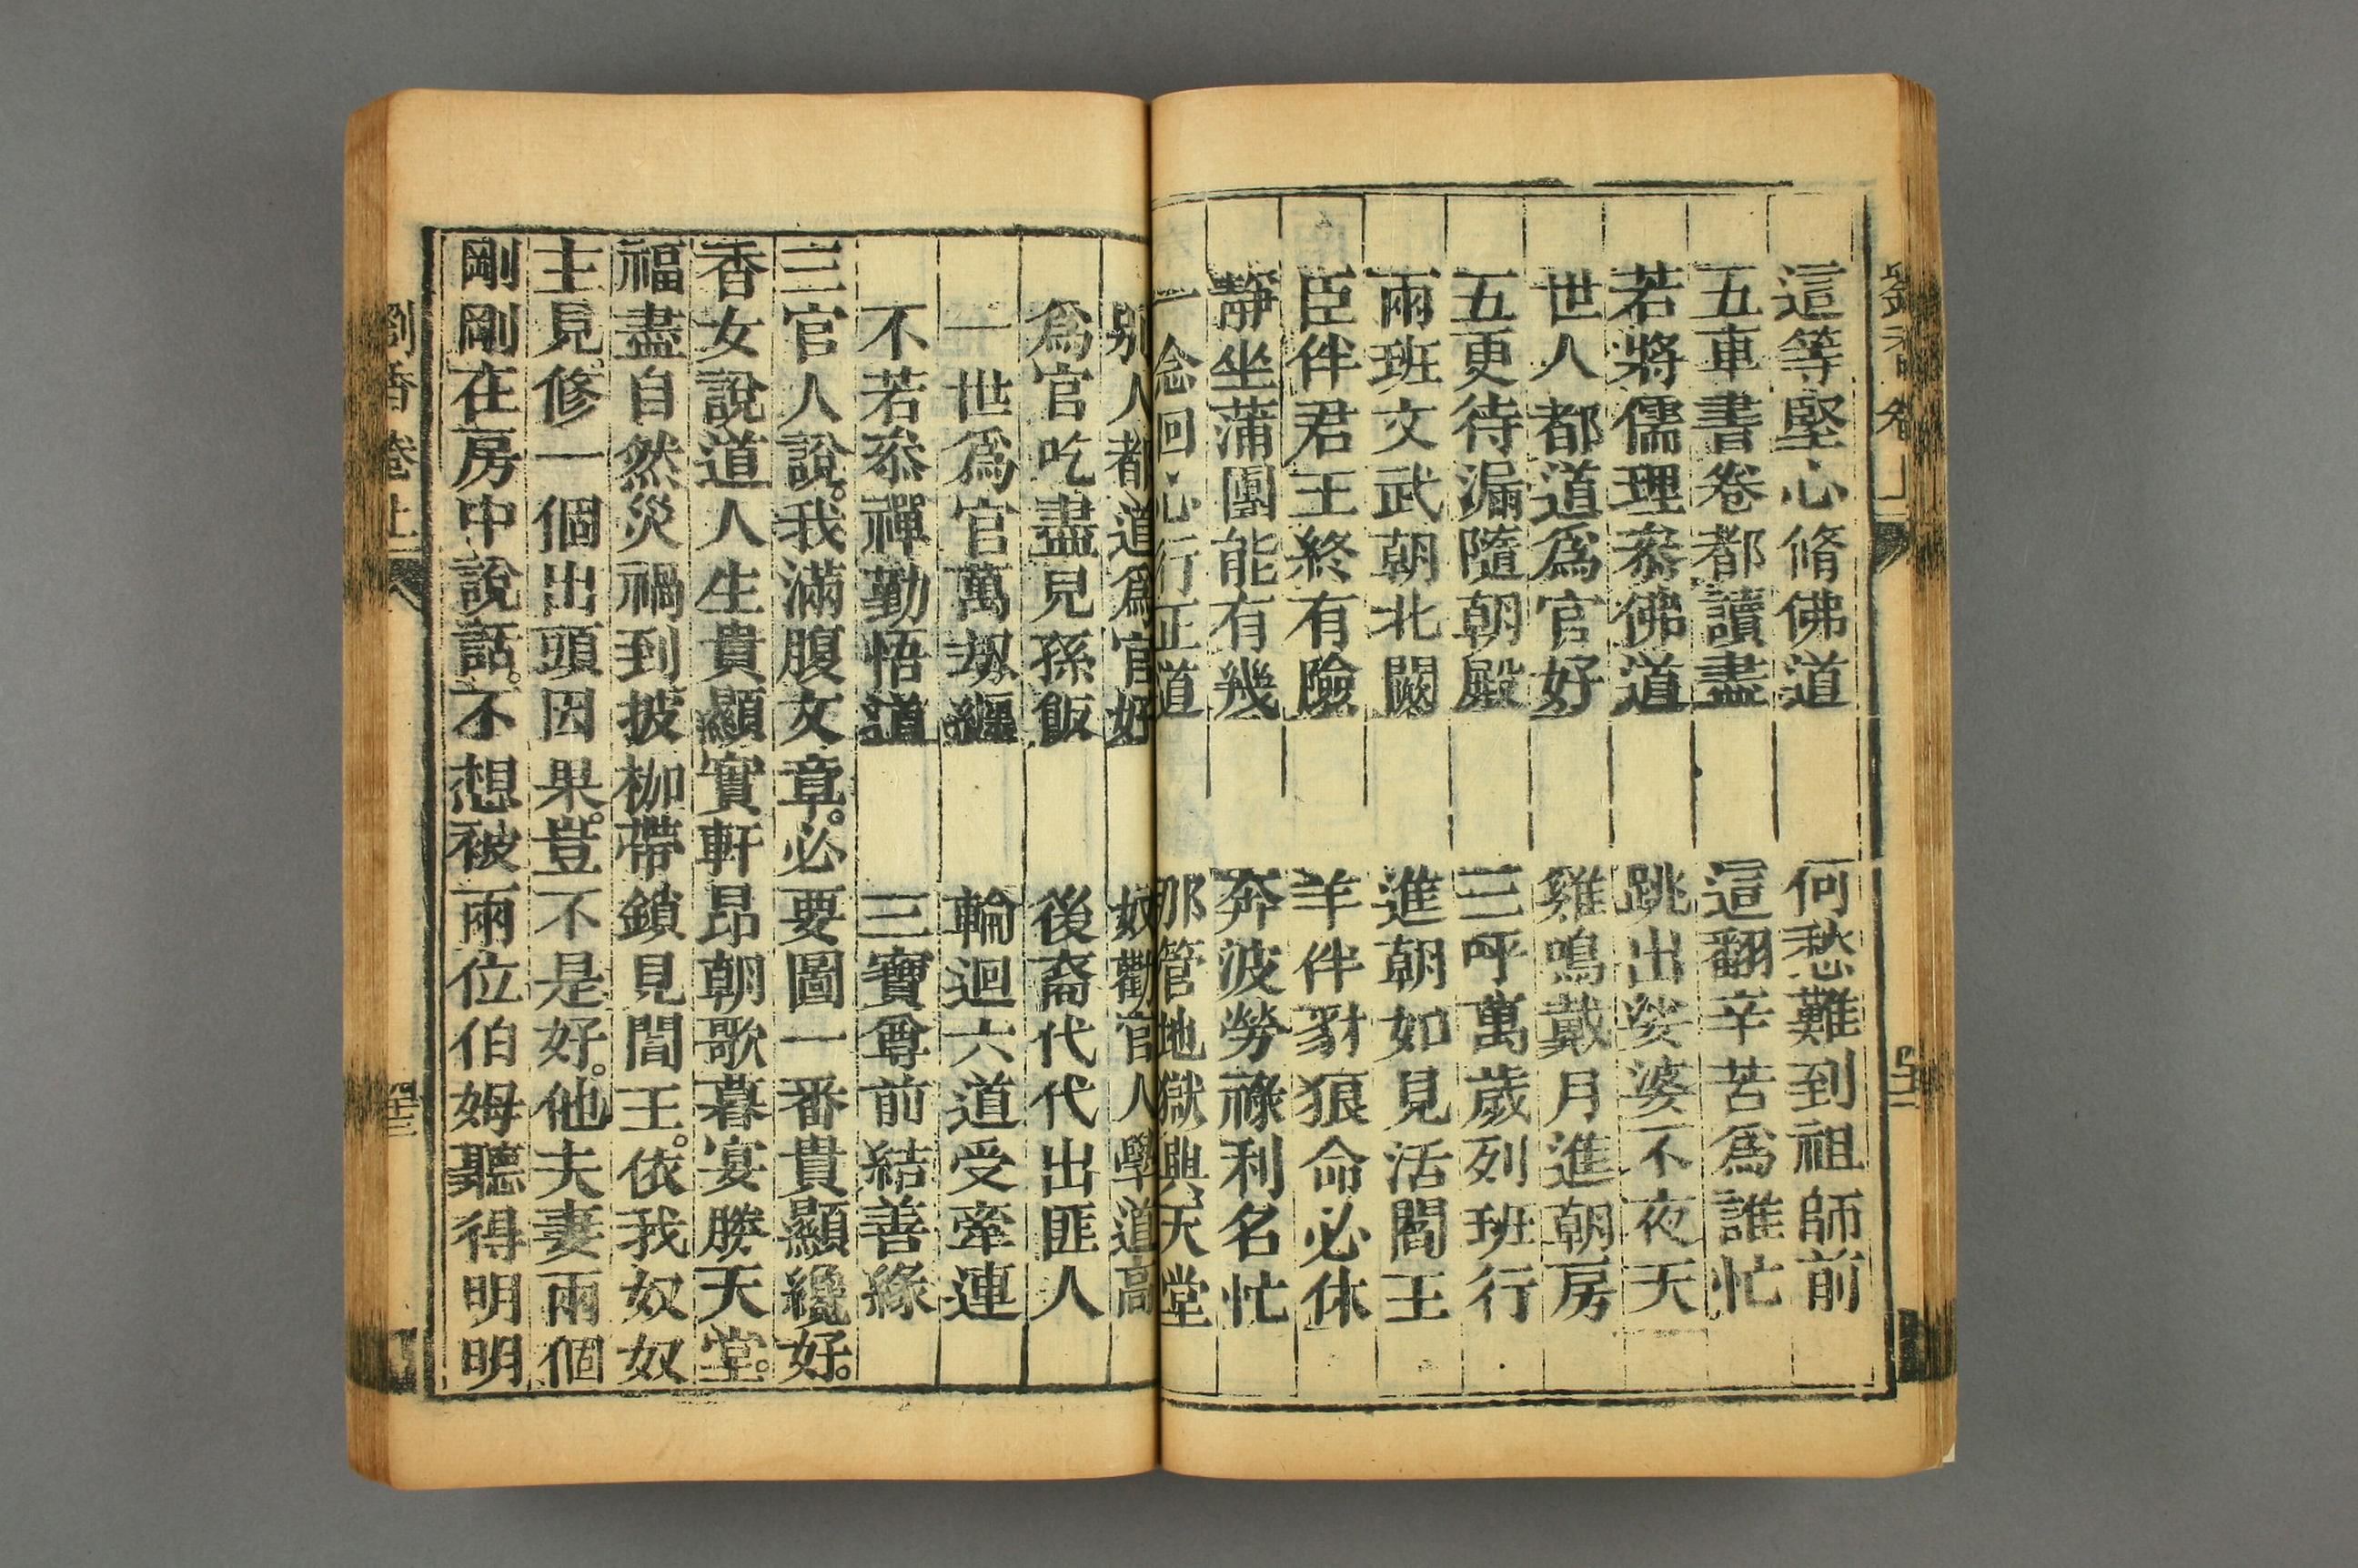 這等堅心脩佛道 何愁難到祖師前
五車書卷都讀盡 這翻辛苦爲誰忙
若將儒理叅佛道 跳出娑婆不夜天
世人都道爲官好 雞鳴戴月進朝房
五更待漏隨朝殿 三呼萬歲列班行
兩班文武朝北闕 進朝如見活閻王
臣伴君王終有險 羊伴豺狼命必休
靜坐蒲團能有幾 奔波勞祿利名忙
一念回心行正道 那管地獄與天堂
別人都道爲官好 奴勸官人學道高
爲官吃盡見孫飯 後裔代代出匪人
一世爲官萬刼纏 輪迴六道受牽連
不若叅禪勤悟道 三寶尊前結善緣
三官人說。我滿腹文章。必要圖一番貴顯纔好。
香女說道人生貴顯實軒昂朝歌暮宴勝天堂。
福盡自然災禍到披枷帶鎖見閻王。依我奴奴
主見。修一個出頭因果。豈不是好。他夫妻兩個
剛剛在房中說話。不想被兩位伯姆聽得明明
劉香卷上